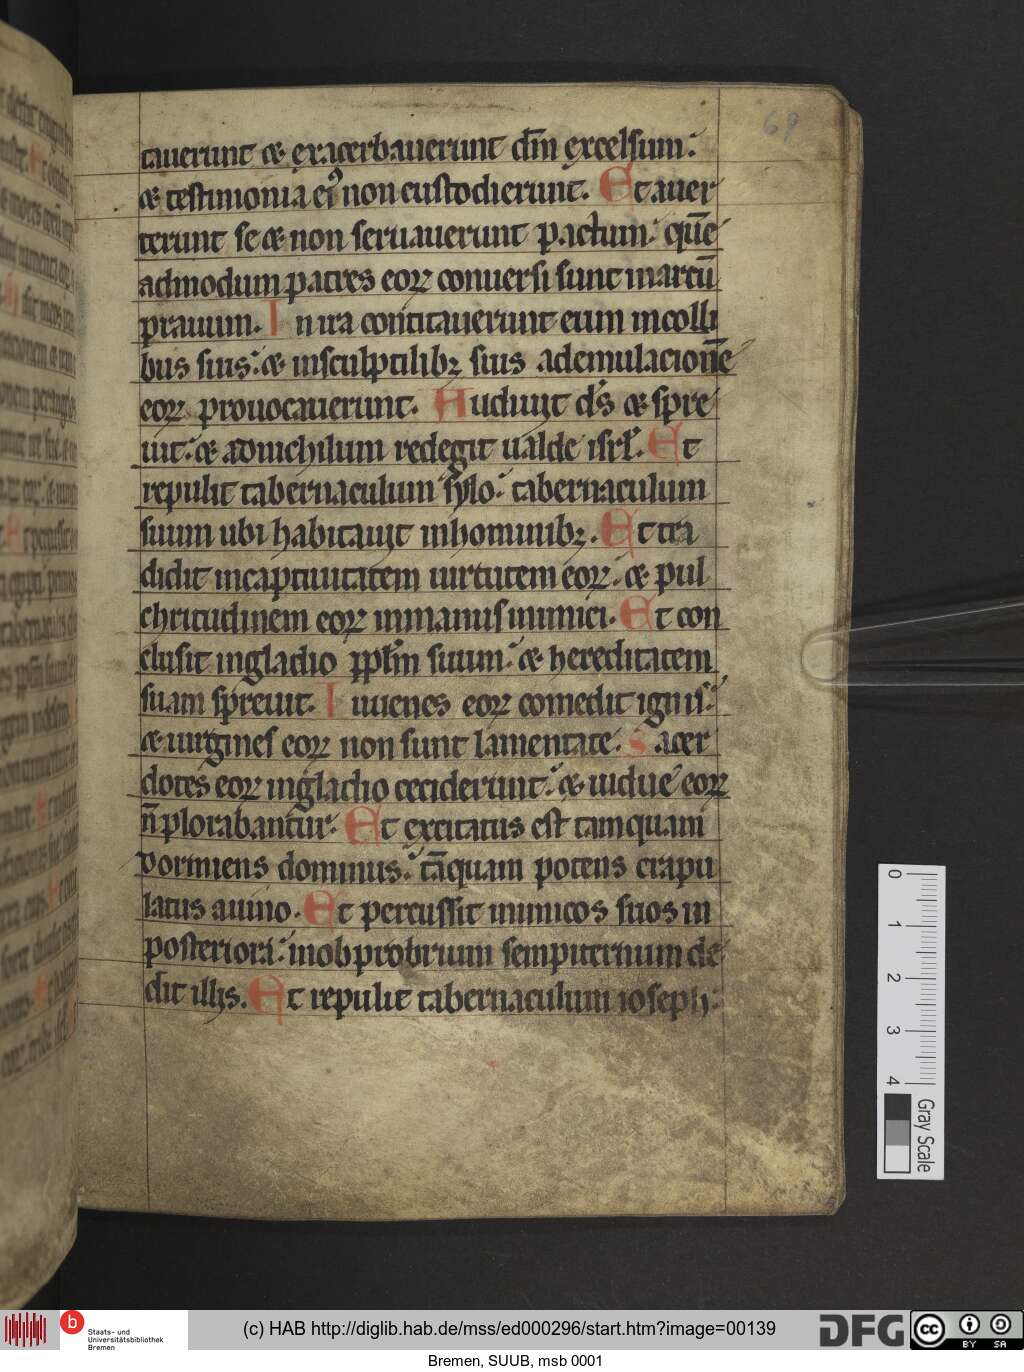 69
tauerunt & exacerbauerunt dm̄ excelsum:
& testimonia eiꝰ non custodierunt. Et auer
terunt se & non seruauerunt pactum: quē
admodum patres eoꝝ conuersi sunt in arcū
prauum. In ira concitauerunt eum in colli
bus suis: & in sculptilibꝫ suis ad emulacionē
eoꝝ prouocauerunt. Audiuit ds̄ & spre
uit: & ad nichilum redegit ualde isrl̄. Et
repulit tabernaculum sylo: tabernaculum
suum ubi habitauit in hominibꝫ. Et tra
didit in captiuitatem uirtutem eoꝝ. & pul
chritudinem eoꝝ in manus inimici. Et con
clusit in gladio ppl̄m suum: & hereditatem
suam spreuit. Iuuenes eoꝝ comedit ignis:
& uirgines eoꝝ non sunt lamentate. Sacer
dotes eoꝝ in gladio ceciderunt: & uidue eoꝝ
n̄ plorabantur. Et excitatus est tamquam
dormiens dominus: tāquam potens crapu
latus a uino. Et percussit inimicos suos in
posteriora: in obprobrium sempiternum de
dit illis. Et repulit tabernaculum ioseph:
0
1
2
3
4
Gray Scale
b
Staats- und
Universitätsbibliothek
Bremen
(c) HAB http://diglib.hab.de/mss/ed000296/start.htm?image=00139
DFG
cc
BY SA
Bremen, SUUB, msb 0001